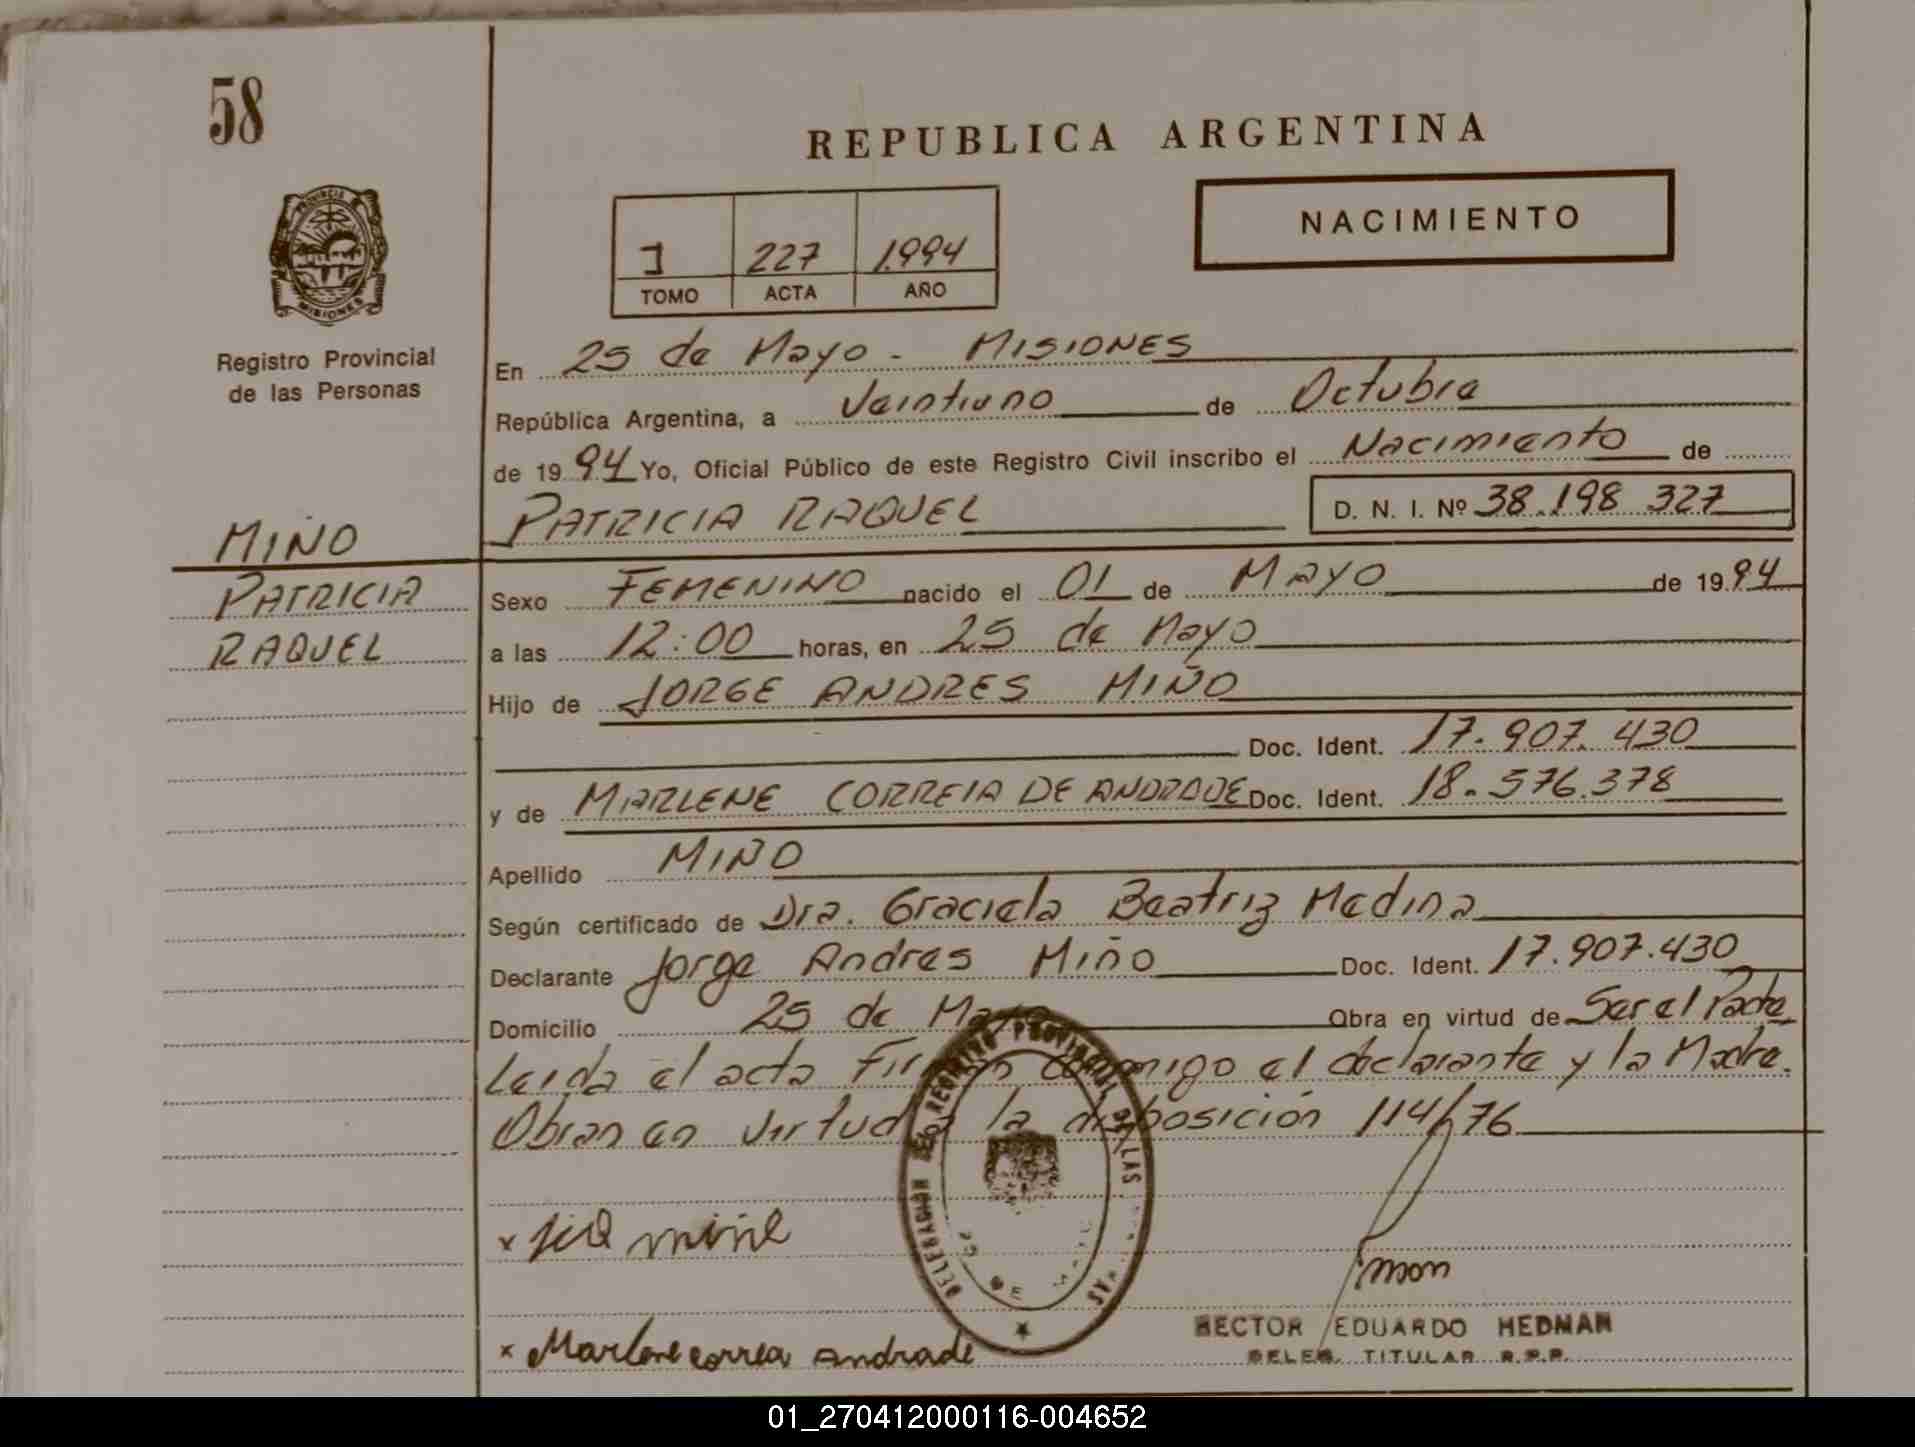 58
REPUBLICA ARGENTINA
NACIMIENTO
I 227 1994
TOMO ACTA AÑO
PROVINCIA
MISIONES
Registro Provincial
de las Personas
En 25 de Mayo - MISIONES
República Argentina, a Veintiuno de Octubre
de 1994 Yo, Oficial Público de este Registro Civil inscribo el Nacimiento de
PATRICIA RAQUEL D. N. I. Nº 38.198.327
MIÑO
PATRICIA
RAQUEL
Sexo FEMENINO nacido el 01 de MAYO de 1994
a las 12:00 horas, en 25 de Mayo
Hijo de JORGE ANDRES MIÑO
Doc. Ident. 17.907.430
y de MARLENE CORREIA DE ANDRADE Doc. Ident. 18.576.378
Apellido MIÑO
Según certificado de Dra. Graciela Beatriz Medina
Declarante Jorge Andres Miño Doc. Ident. 17.907.430
Domicilio 25 de Mayo Obra en virtud de Ser el Padre
Leida el acta Firman conmigo el declarante y la Madre.
Obran en virtud a la disposición 114/76
DELEGACION DEL REGISTRO PROVINCIAL DE LAS
x miñe
x Marlene correa Andrade
HECTOR EDUARDO HEDMAN
DELEG. TITULAR R.P.P.
01_270412000116-004652